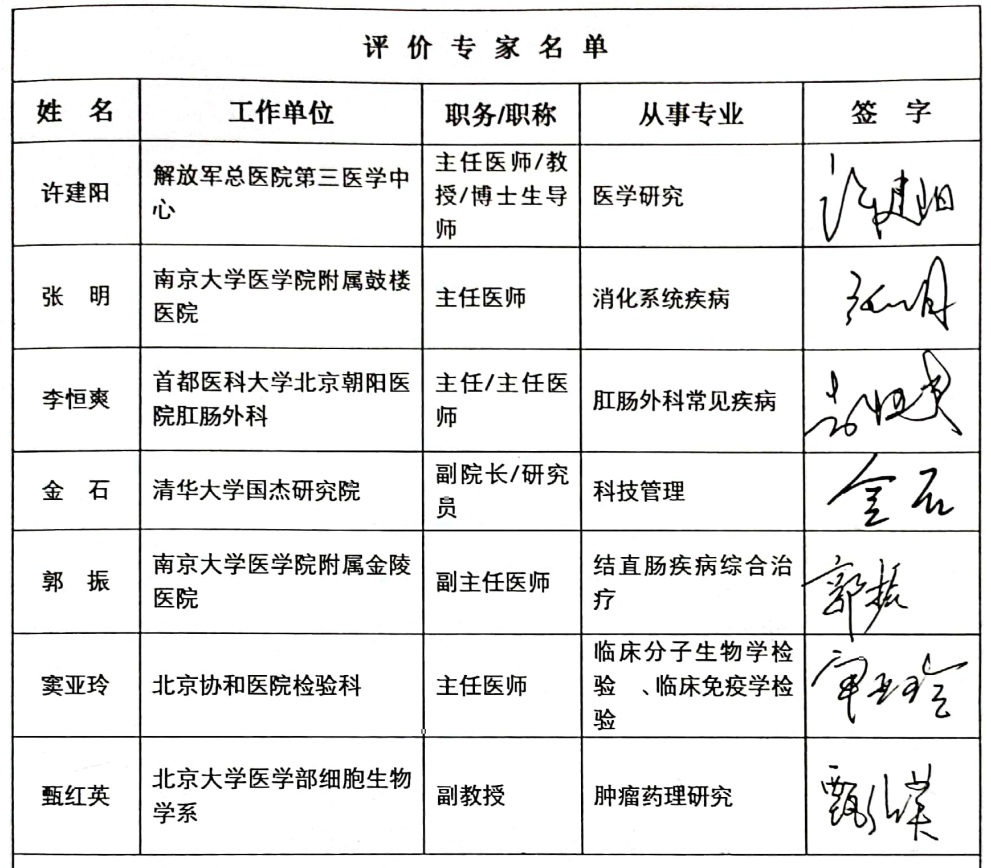 评价专家名单
姓 名 工作单位 职务/职称 从事专业 签 字
许建阳 解放军总医院第三医学中 主任医师/教 医学研究 许建阳
心 授/博士生导
师
张 明 南京大学医学院附属鼓楼 主任医师 消化系统疾病 张明
医院
李恒爽 首都医科大学北京朝阳医 主任/主任医 肛肠外科常见疾病 李恒爽
院肛肠外科 师
金 石 清华大学国杰研究院 副院长/研究 科技管理 金石
员
郭 振 南京大学医学院附属金陵 副主任医师 结直肠疾病综合治 郭振
医院 疗
窦亚玲 北京协和医院检验科 主任医师 临床分子生物学检 窦亚玲
验 、临床免疫学检
验
甄红英 北京大学医学部细胞生物 副教授 肿瘤药理研究 甄红英
学系